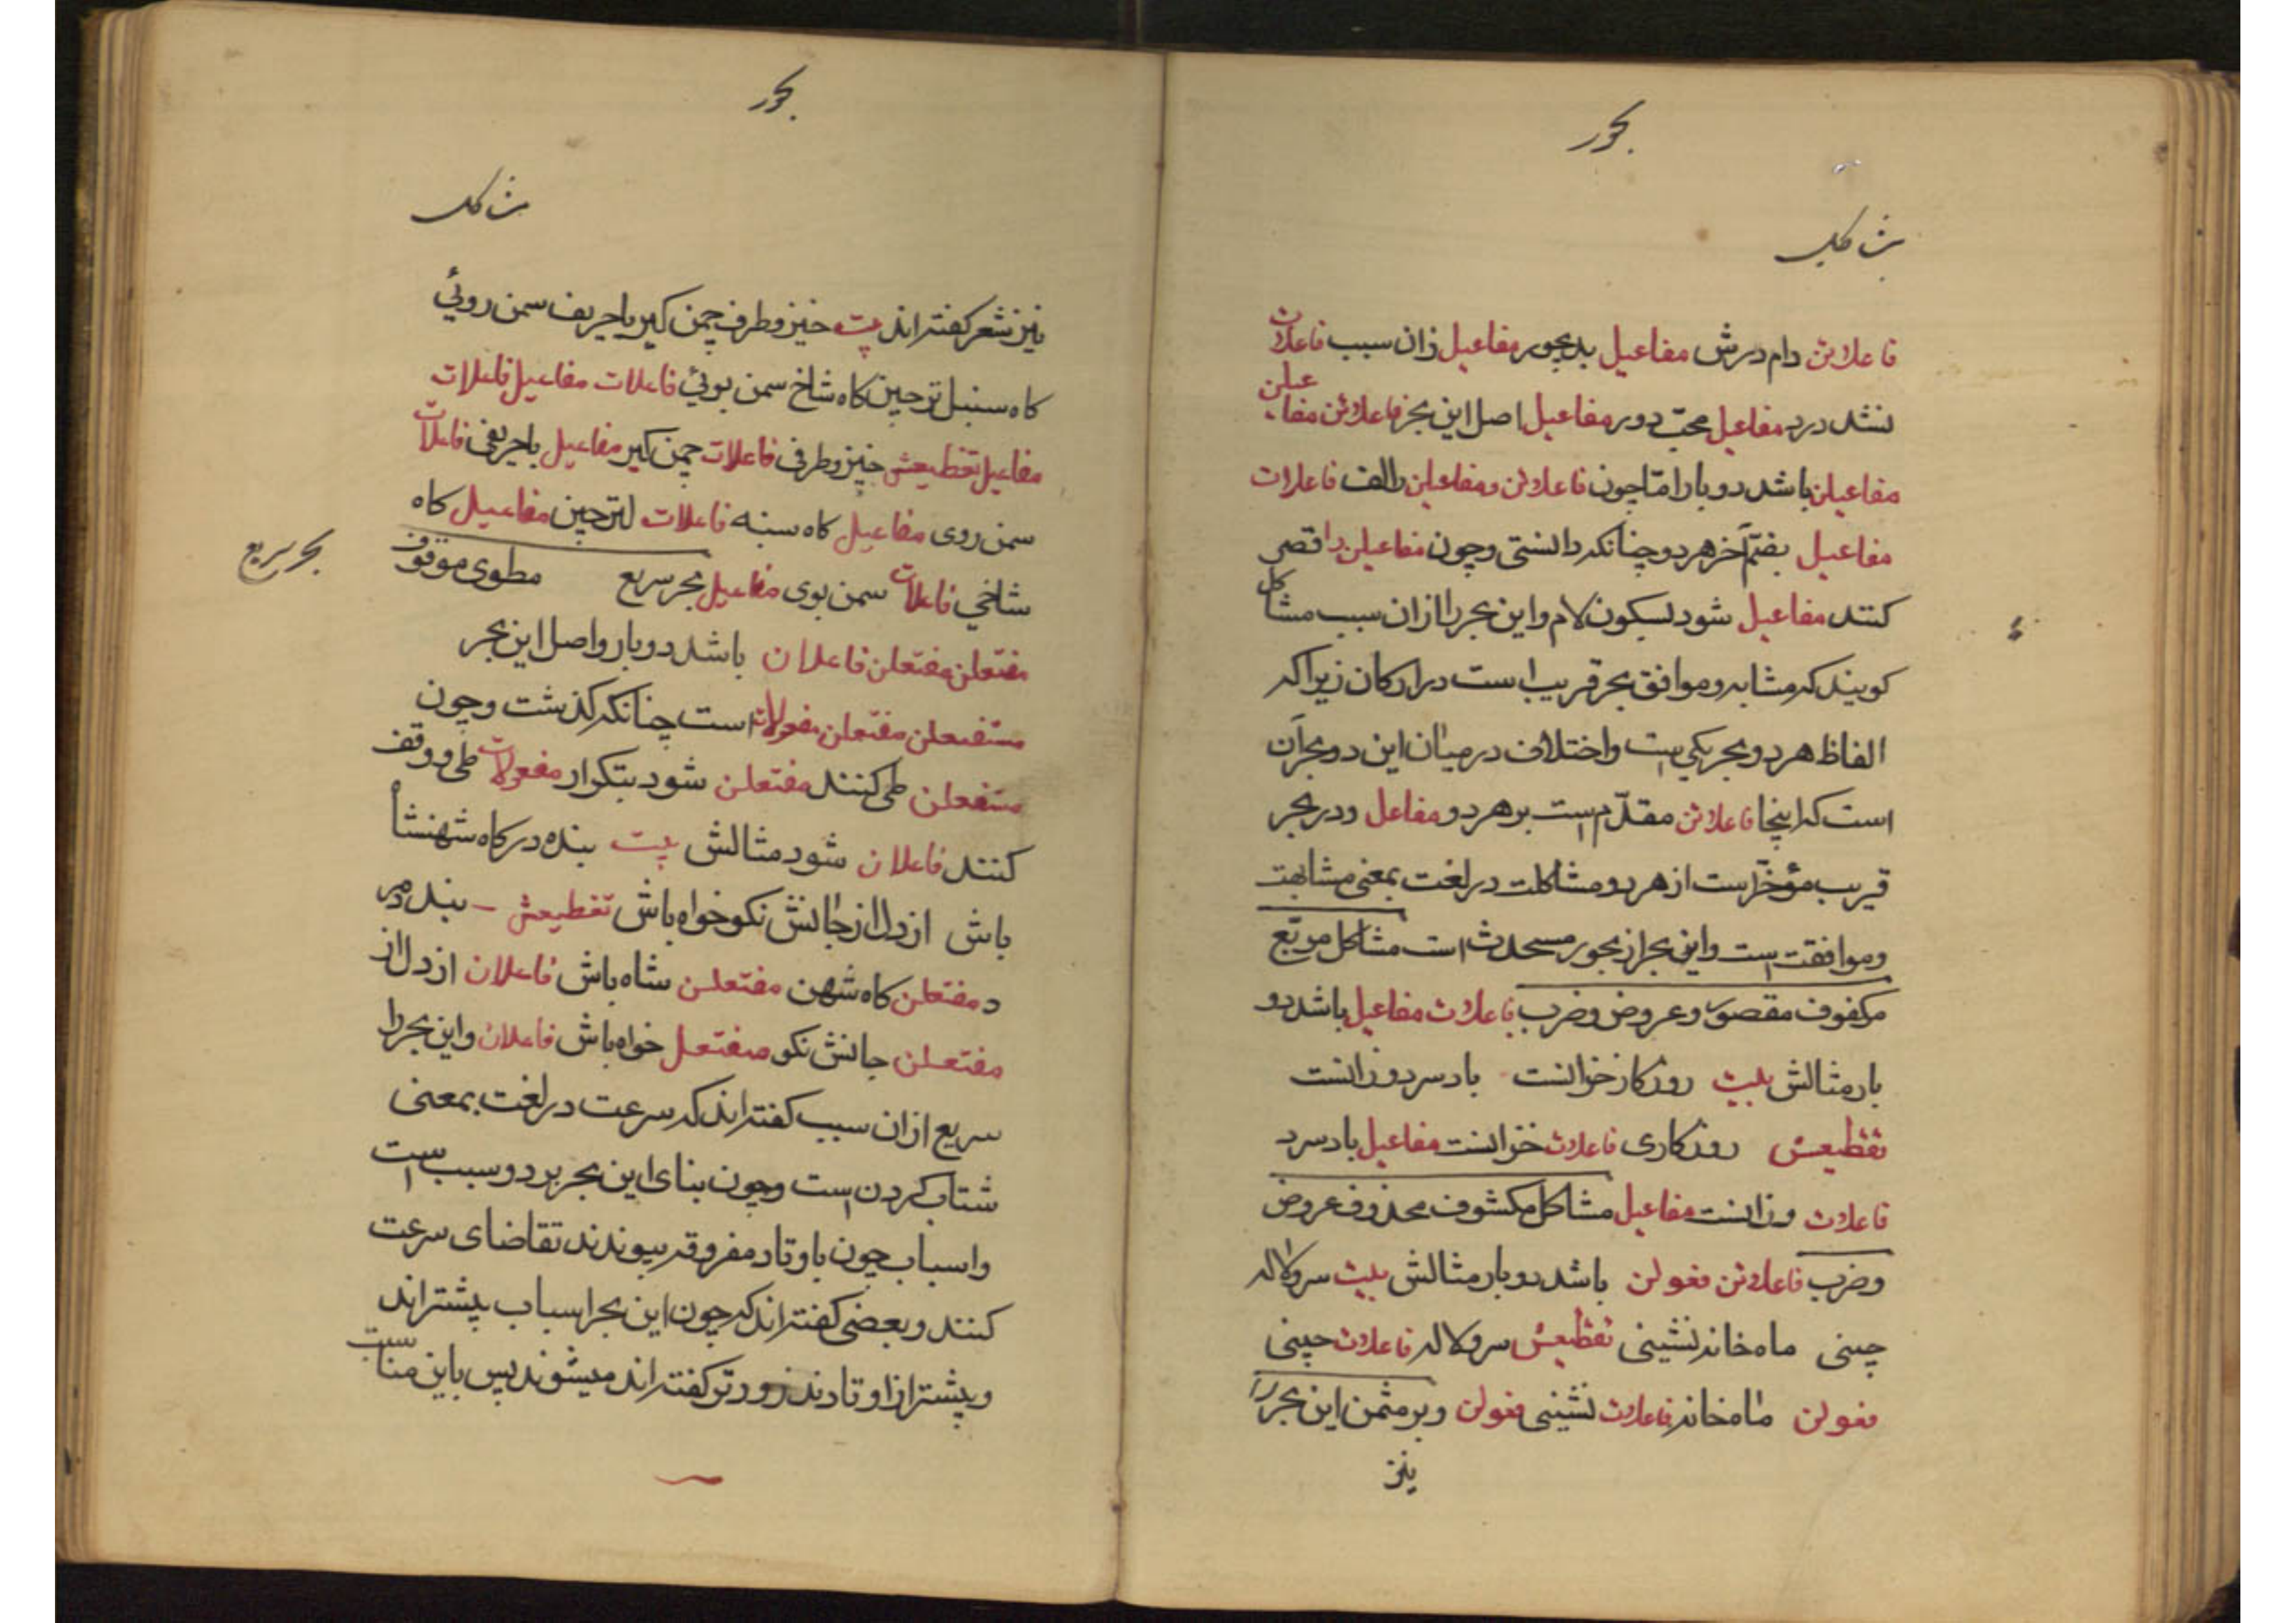 بحور
مشاکل
فاعلاتن دام درش مفاعیل بدبجور مفاعیل زان سبب فاعلات
نشد درد مفاعیل محب دور مفاعیل اصل این بحر فاعلاتن مفاعیلن
مفاعیلن باشد دو بار امّا چون فاعلاتن و مفاعیلن را کف فاعلات
مفاعیل بضمّ آخر هر دو چنانکه دانستی و چون مفاعیلن را قصر
کنند مفاعیل شود بسکون لام و این بحر را از ان سبب مشاکل
کویند که مشابه و موافق بحر قریب است در ارکان زیرا که
الفاظ هر دو بحر یکی است و اختلاف در میان این دو بحر آن
است که اینجا فاعلاتن مقدّم است بر هر دو مفاعل و در بحر
قریب مؤخّر است از هر دو مشاکلت در لغت بمعنی مشابهت
و موافقت است و این بحر از بحور مستحدث است مشاکل مربّع
مکفوف مقصور و عروض و ضرب فاعلات مفاعیل باشد دو
بار مثالش بیت روزکار خزانست باد سرد وزانست
تقطیعش روزکاری فاعلات خزانست مفاعیل باد سرد
فاعلات وزانست مفاعیل مشاکل مکشوف محذوف عروض
و ضرب فاعلاتن فعولن باشد دو بار مثالش بیت سرو کاله
چینی ماه خانه نشینی تقطیعش سرو کاله فاعلات چینی
فعولن ماه خانه فاعلات نشینی فعولن و بر مثمن این بحر را
نیز
بحور
مشاکل
نیز شعر کفته اند بیت خیز و طرف چمن کیر با حریف سمن روئی
کاه سنبل تر چین کاه شاخ سمن بوئی فاعلات مفاعیل فاعلات
مفاعیل تقطیعش خیز و طرفی فاعلات چمن کیر مفاعیل با حریفی فاعلات
سمن روی مفاعیل کاه سنبه فاعلات لتر چین مفاعیل کاه
شاخی فاعلات سمن بوی مفاعیل بحر سریع مطوی موقوف
بحر سریع
مفتعلن مفتعلن فاعلان باشد دو بار و اصل این بحر
مستفعلن مفتعلن مفعولات است چنانکه کذشت و چون
مستفعلن طی کنند مفتعلن شود بتکرار مفعولات طی و وقف
کنند فاعلان شود مثالش بیت بنده درکاه شهنشاه
باش از دل از جانش نکو خواه باش تقطیعش بند در
د مفتعلن کاه شهن مفتعلن شاه باش فاعلان از دل از
مفتعلن جانش نکو مفتعل خواه باش فاعلان و این بحر را
سریع از ان سبب کفته اند که سرعت در لغت بمعنی
شتاب کردن است و چون بنای این بحر بر دو سبب است
و اسباب چون با وتاد مفروقه پیوندند تقاضای سرعت
کنند و بعضی کفته اند که چون این بحر اسباب پیشتر اند
و پیشتر از اوتادند زودتر کفته اند میشوند پس باین مناسبت